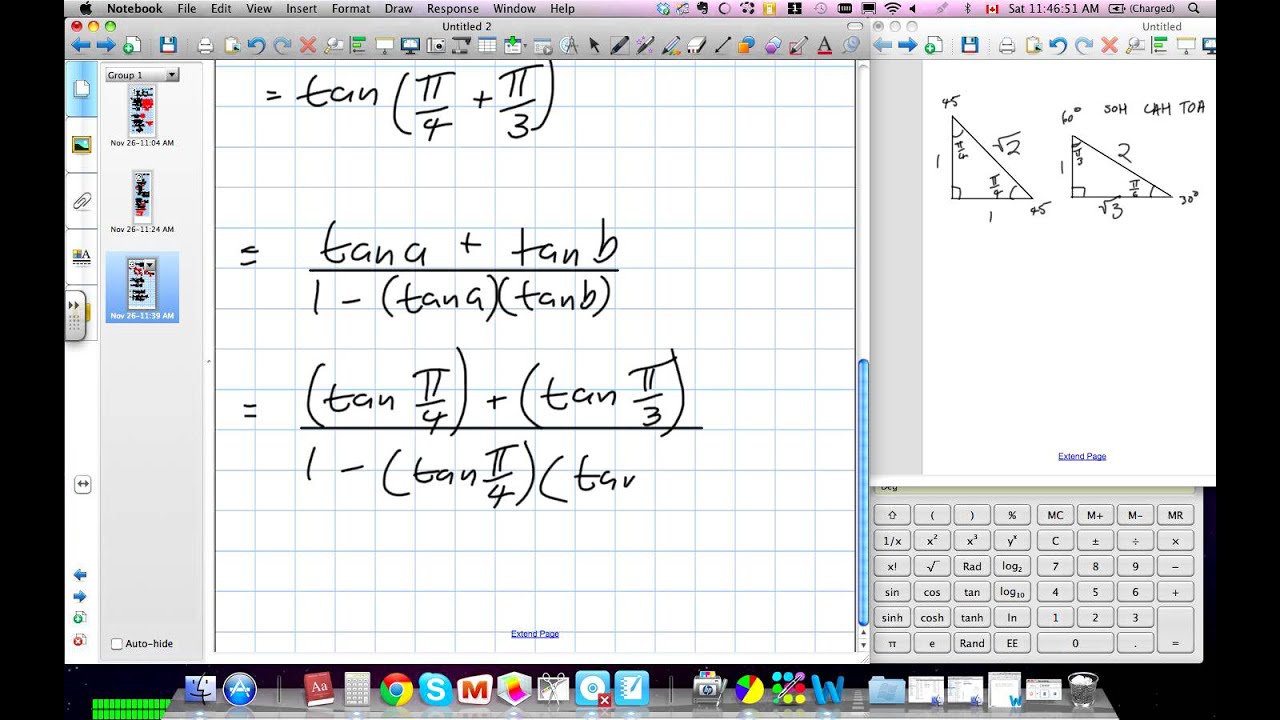 Notebook File Edit View Insert Format Draw Response Window Help Sat 11:46:51 AM (Charged)
Untitled 2
Untitled
Group 1
Nov 26–11:04 AM
Nov 26–11:24 AM
Nov 26–11:39 AM
Auto-hide
= tan (π/4 + π/3)
= tan a + tan b
1 - (tan a)(tan b)
= (tan π/4) + (tan π/3)
1 - (tan π/4)(tan
Extend Page
45 60° SOH CAH TOA
π/4 √2 π/3 2
1 π/4 1 π/6
1 45 √3 30°
Extend Page
Deg
( ) % MC M+ M- MR
1/x x² x³ yˣ C ± ÷ ×
x! √ Rad log₂ 7 8 9 −
sin cos tan log₁₀ 4 5 6 +
sinh cosh tanh ln 1 2 3
π e Rand EE 0 . =
Aa
W